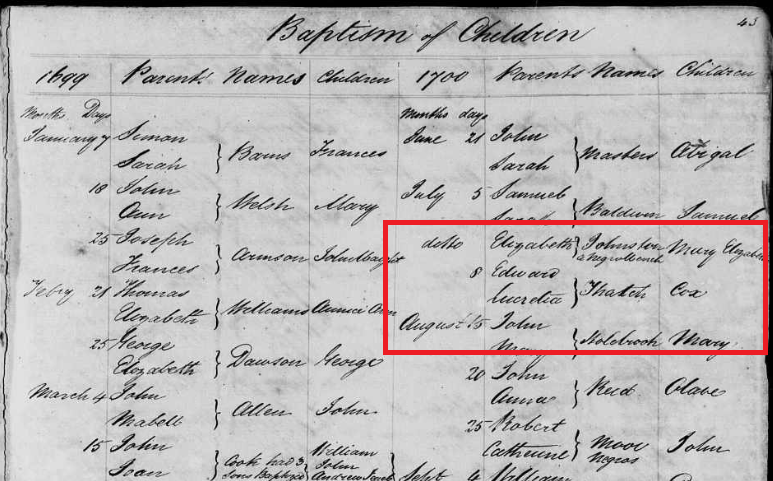 43
Baptism of Children
1699 Parents Names Children 1700 Parents Names Children
Months Days
January 7 Simon
Sarah } Barns Frances
18 John
Ann } Welsh Mary
25 Joseph
Frances
Febry 21 Thomas
Elizabeth } Williams Ann
25 George
Elizabeth } Dawson George
March 4 John
Mabell } Allen John
15 John
Joan } Cook had 3 Sons Baptized
William
John
Andrew
Months days
June 21 John
Sarah } Masters Abigal
July 5 Samuel
Sarah } Baldwin Samuel
ditto Elizabeth } Johnston Mary Elizabeth
a Negro Wench
8 Edward
Lucretia } Thatch Cox
August 15 John
Mary } Holebrook Mary
20 John
Anna } Reed Olave
25 Robert
Catherine } Moor John
Negros
Sept 4 William